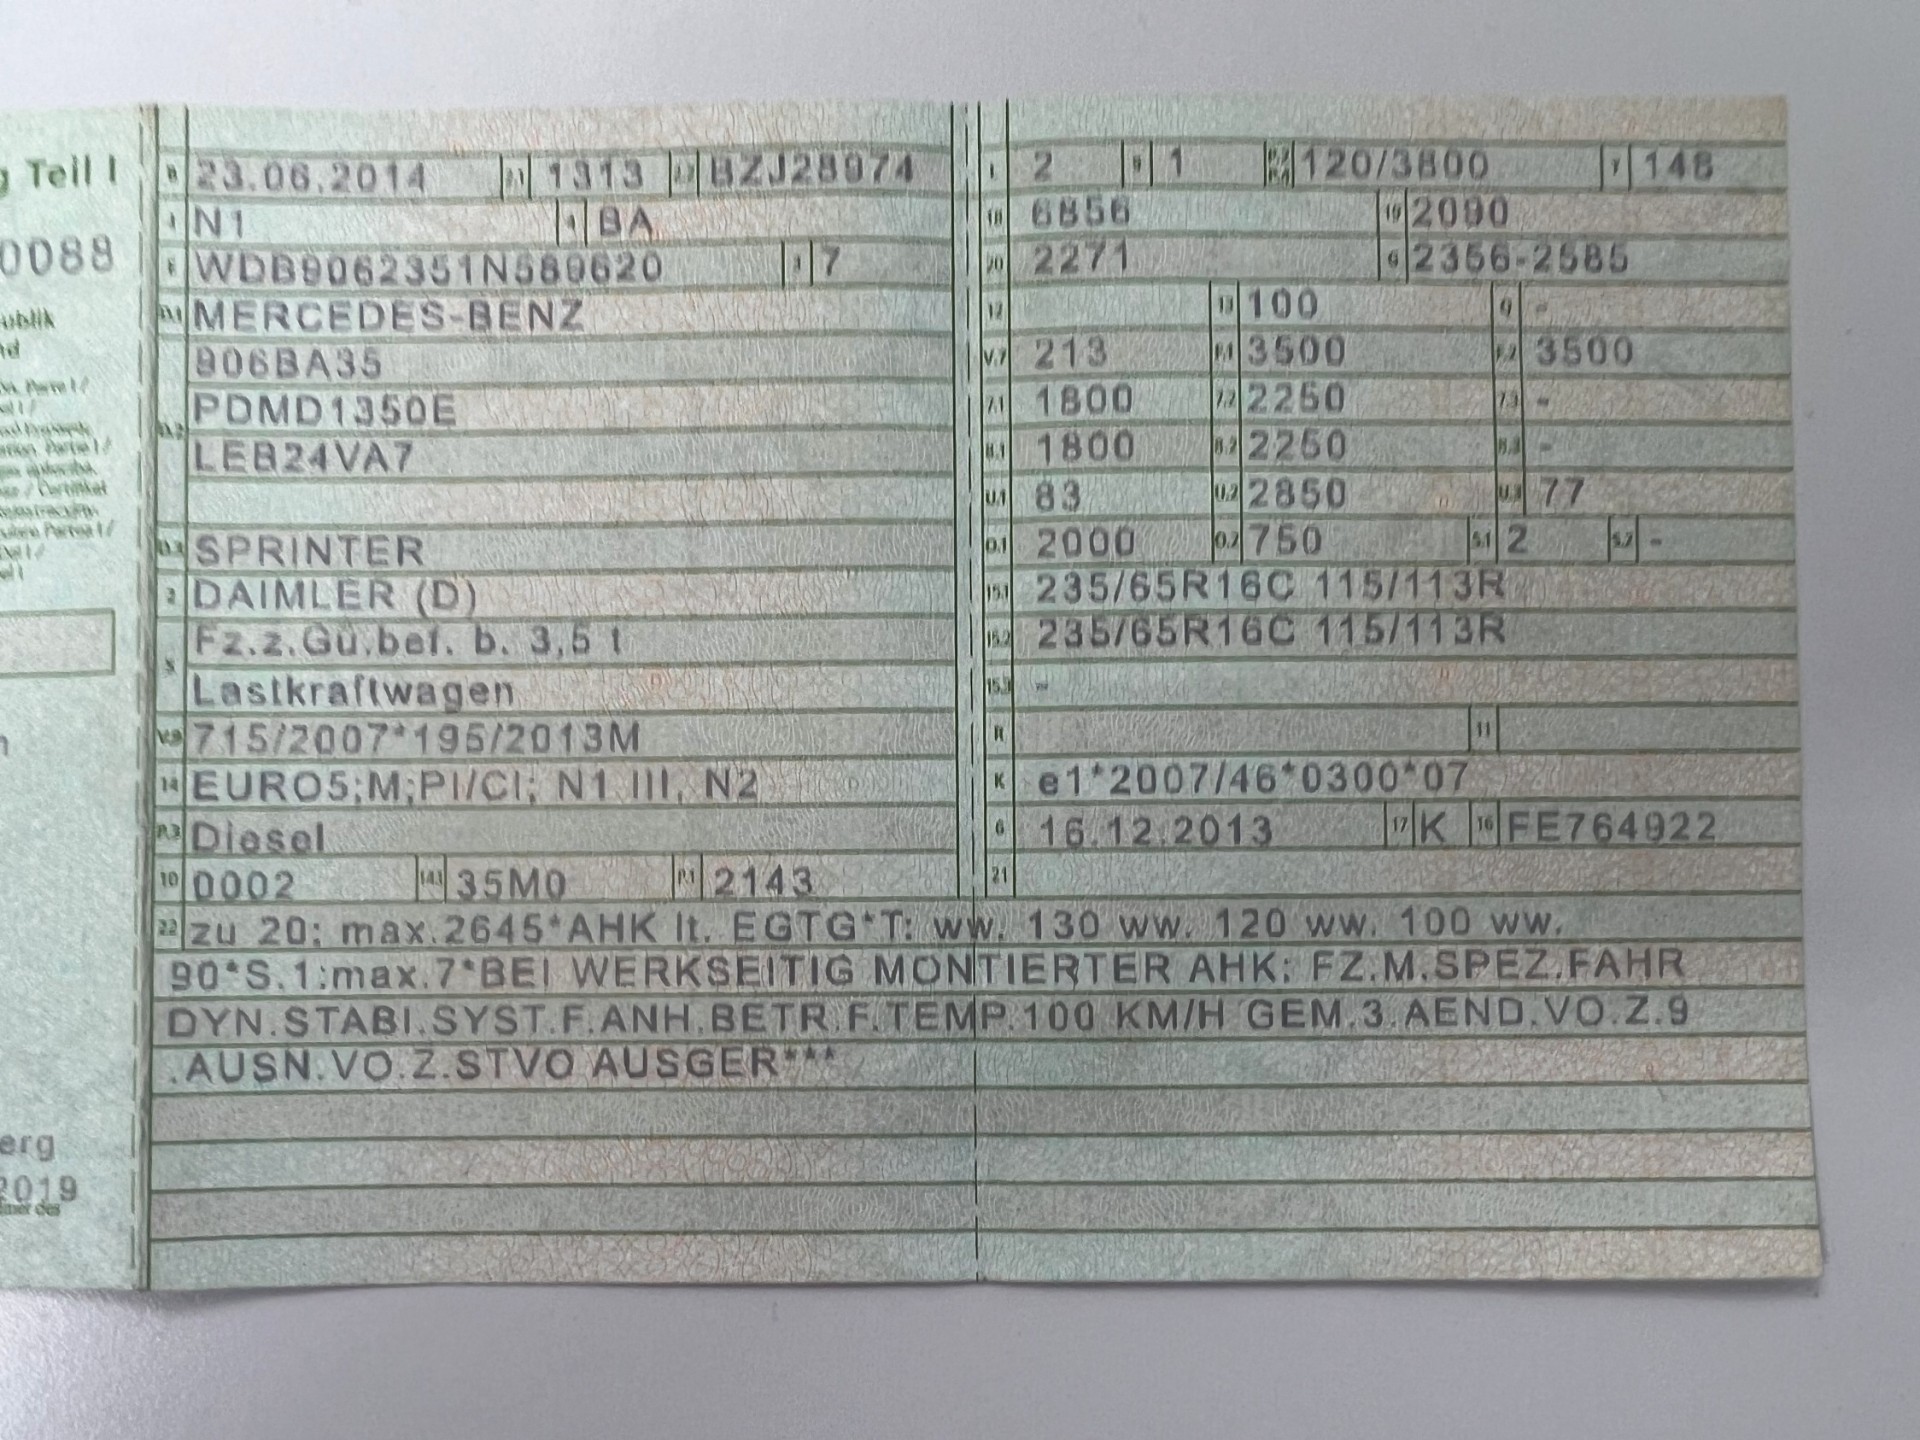 g Teil I
0088
ublik
nd
erg
2019
B 23.06.2014 2.1 1313 2.2 BZJ28974
J N1 4 BA
E WDB9062351N589620 3 7
D.1 MERCEDES-BENZ
906BA35
D.2 PDMD1350E
LEB24VA7
D.3 SPRINTER
2 DAIMLER (D)
5 Fz.z.Gü.bef. b. 3,5 t
Lastkraftwagen
V.9 715/2007*195/2013M
14 EURO5;M;PI/CI; N1 III, N2
P.3 Diesel
10 0002 14.1 35M0 P.1 2143
L 2 9 1 P.2 P.4 120/3800 T 148
18 6856 19 2090
20 2271 G 2356-2585
12 13 100 Q -
V.7 213 F.1 3500 F.2 3500
7.1 1800 7.2 2250 7.3 -
8.1 1800 8.2 2250 8.3 -
U.1 83 U.2 2850 U.3 77
O.1 2000 O.2 750 S.1 2 S.2 -
15.1 235/65R16C 115/113R
15.2 235/65R16C 115/113R
15.3 -
R 11
K e1*2007/46*0300*07
6 16.12.2013 17 K 16 FE764922
21
22 zu 20: max.2645*AHK lt. EGTG*T: ww. 130 ww. 120 ww. 100 ww.
90*S.1:max.7*BEI WERKSEITIG MONTIERTER AHK: FZ.M.SPEZ.FAHR
DYN.STABI.SYST.F.ANH.BETR.F.TEMP.100 KM/H GEM.3.AEND.VO.Z.9
.AUSN.VO.Z.STVO AUSGER***